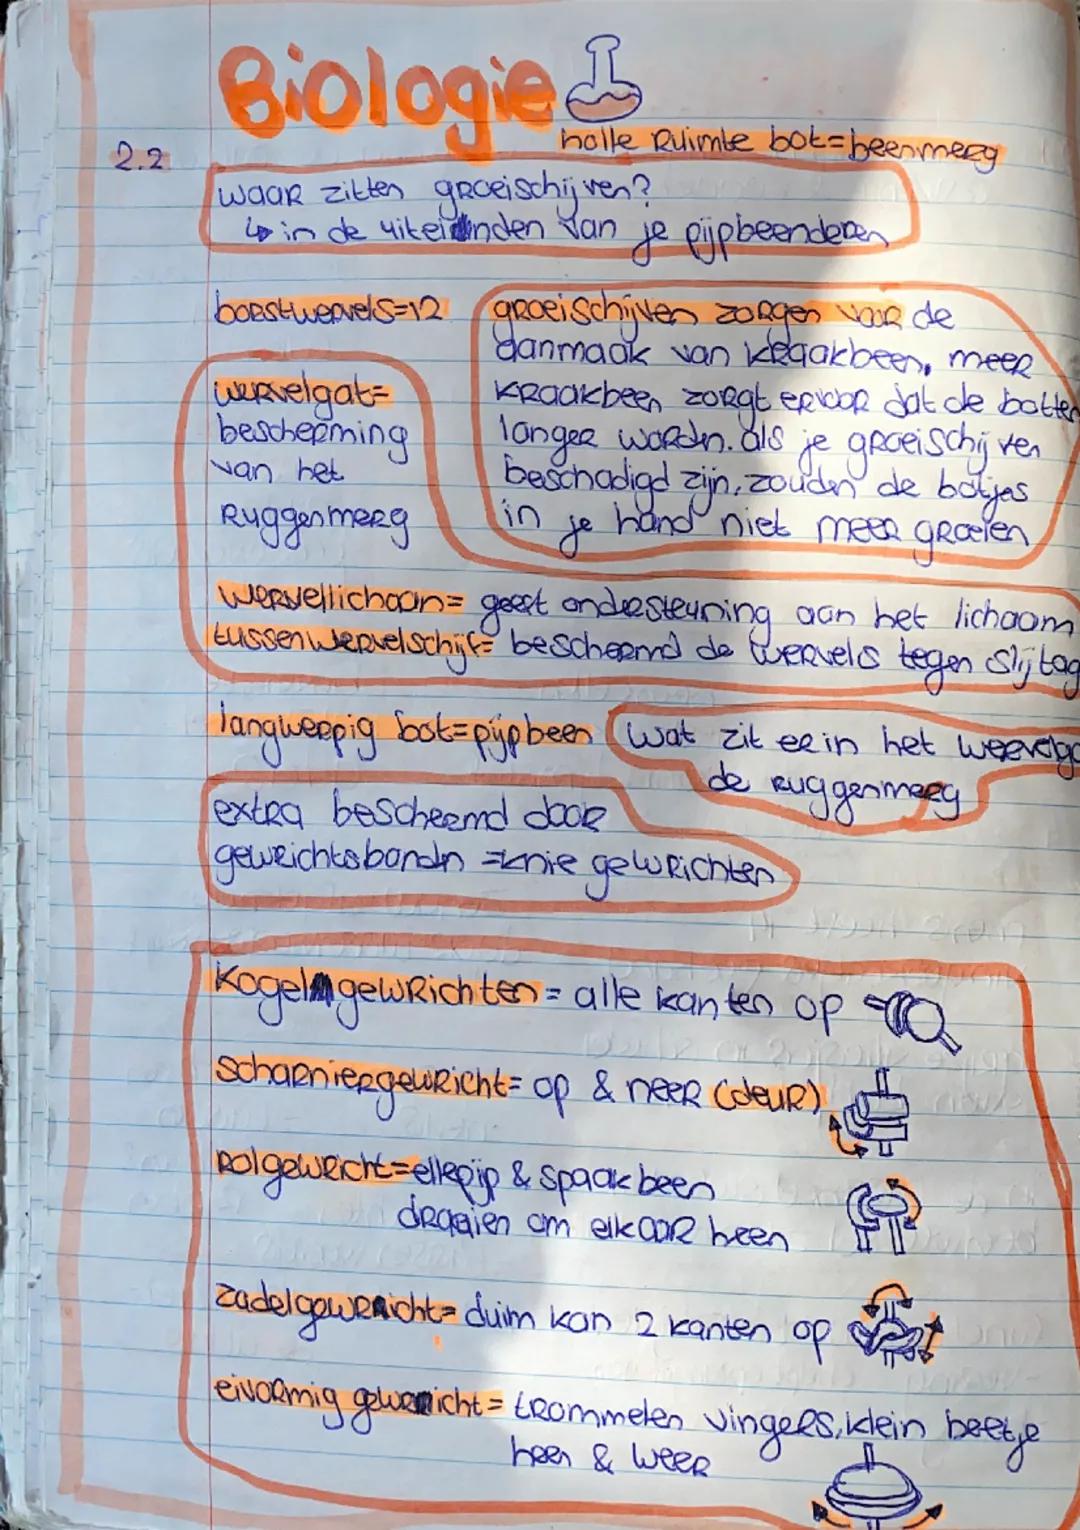 Biologie
holle Ruimte bot=beenmerg
2.2
waar zitten groeischijven?
↳ in de uiteinden van je pijpbeenderen
borstwervels=12
groeischijven zorgen voor de
aanmaak van kraakbeen, meer
kraakbeen zorgt ervoor dat de botten
langer wordn. als je groeischijven
beschadigd zijn, zouden de botjes
in je hand niet meer groeien
wervelgat=
bescherming
van het
Ruggenmerg
wervellichaan= geeft ondersteuning aan het lichaam
tussenwervelschijf= beschermd de wervels tegen slijtag
langwerpig bot=pijpbeen
wat zit er in het
de ruggenmerg
extra beschermd door
gewrichtsbandn =knie gewrichten
Kogelgewrichten= alle kanten op
scharniergewricht= op & neer (deur)
Rolgewricht=ellepijp & spaakbeen
draaien om elkaar heen
zadelgewricht= duim kan 2 kanten op
eivormig gewricht= trommelen vingers, klein beetje
heen & weer